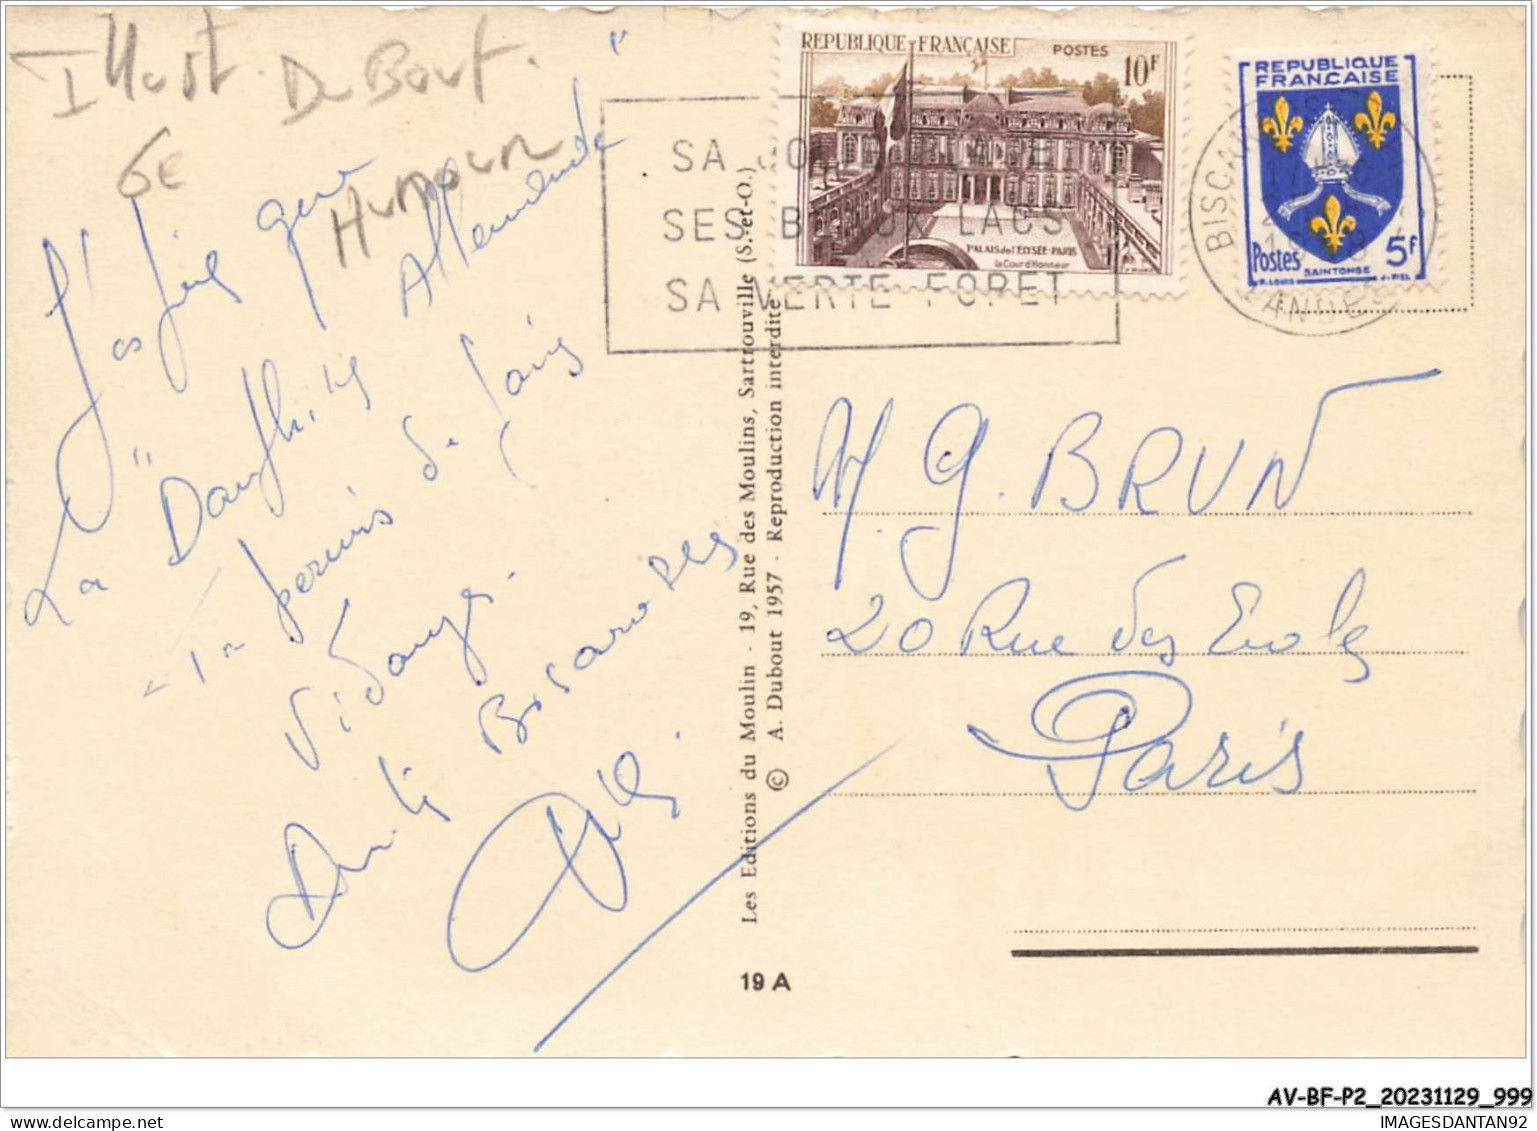 Illust. Dubout.
6E
Humour
J'espère que
La "Dauphine Allemande"
a permis de faire
Vidange.
Amitiés
REPUBLIQUE FRANÇAISE POSTES
10F
PALAIS de l'ELYSÉE-PARIS
la Cour d'Honneur
REPUBLIQUE
FRANÇAISE
Postes
5F
SAINTONGE
SA
SES BEAUX LACS
SA VERTE FORET
BISCAR
LANDES
M. G. BRUN
20 Rue des Ecoles
Paris
Les Editions du Moulin - 19, Rue des Moulins, Sartrouville (S.-et-O.)
© A. Dubout 1957 - Reproduction interdite
19 A
AV-BF-P2_20231129_999
delcampe.net
IMAGESDANTAN92